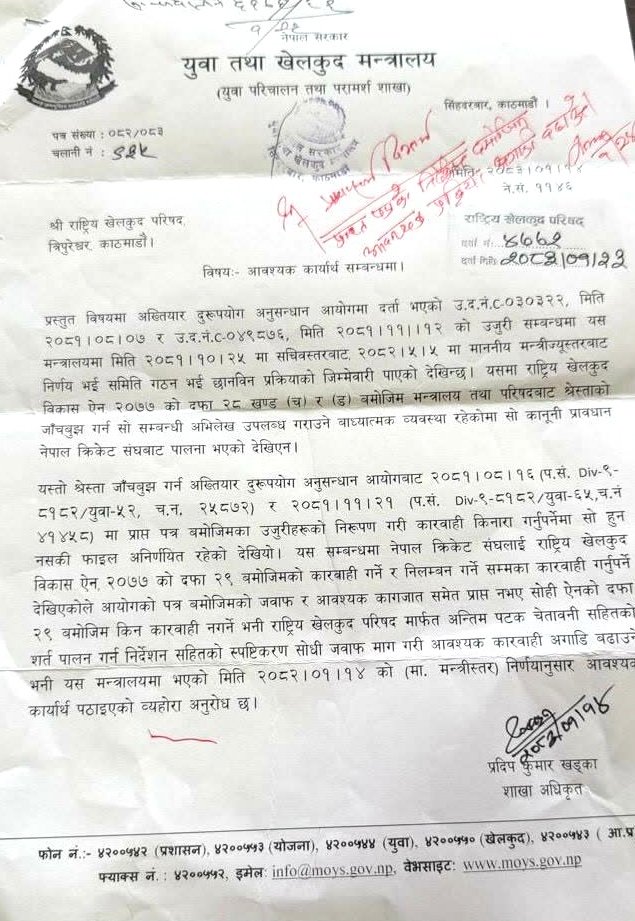 नेपाल सरकार
युवा तथा खेलकुद मन्त्रालय
(युवा परिचालन तथा परामर्श शाखा)
सिंहदरबार, काठमाडौं ।
पत्र संख्या : ०८२/०८३
चलानी नं :
मिति: २०८२।०९।१४
ने.सं. ११४६
श्री राष्ट्रिय खेलकुद परिषद,
त्रिपुरेश्वर, काठमाडौं।
राष्ट्रिय खेलकुद परिषद
दर्ता नं. ४६६२
दर्ता मिति: २०८२।०९।२३
विषय:- आवश्यक कार्यार्थ सम्बन्धमा।
प्रस्तुत विषयमा अख्तियार दुरूपयोग अनुसन्धान आयोगमा दर्ता भएको उ.द.नं.C-०३०३२२, मिति
२०८१।०८।०७ र उ.द.नं.C-०४९८७६, मिति २०८१।११।१२ को उजुरी सम्बन्धमा यस
मन्त्रालयमा मिति २०८१।१०।२५ मा सचिवस्तरबाट २०८२।५।५ मा माननीय मन्त्रीज्यूस्तरबाट
निर्णय भई समिति गठन भई छानविन प्रक्रियाको जिम्मेवारी पाएको देखिन्छ। यसमा राष्ट्रिय खेलकुद
विकास ऐन २०७७ को दफा २८ खण्ड (च) र (ड) बमोजिम मन्त्रालय तथा परिषदबाट श्रेस्ताको
जाँचबुझ गर्न सो सम्बन्धी अभिलेख उपलब्ध गराउने बाध्यात्मक व्यवस्था रहेकोमा सो कानूनी प्रावधान
नेपाल क्रिकेट संघबाट पालना भएको देखिएन।
यस्तो श्रेस्ता जाँचबुझ गर्न अख्तियार दुरूपयोग अनुसन्धान आयोगबाट २०८१।०८।१६ (प.सं. Div-९-
८१८२/युवा-५२, च.न. २५८७२) र २०८१।११।२१ (प.सं. Div-९-८१८२/युवा-६५,च.नं
४१४५८) मा प्राप्त पत्र बमोजिमका उजुरीहरूको निरूपण गरी कारवाही किनारा गर्नुपर्नेमा सो हुन
नसकी फाइल अनिर्णयित रहेको देखियो। यस सम्बन्धमा नेपाल क्रिकेट संघलाई राष्ट्रिय खेलकुद
विकास ऐन, २०७७ को दफा २९ बमोजिमको कारबाही गर्ने र निलम्बन गर्ने सम्मका कारवाही गर्नुपर्ने
देखिएकोले आयोगको पत्र बमोजिमको जवाफ र आवश्यक कागजात समेत प्राप्त नभए सोही ऐनको दफा
२९ बमोजिम किन कारवाही नगर्ने भनी राष्ट्रिय खेलकुद परिषद मार्फत अन्तिम पटक चेतावनी सहितको
शर्त पालन गर्न निर्देशन सहितको स्पष्टिकरण सोधी जवाफ माग गरी आवश्यक कारवाही अगाडि बढाउने
भनी यस मन्त्रालयमा भएको मिति २०८२।०९।१४ को (मा. मन्त्रीस्तर) निर्णयानुसार आवश्यक
कार्यार्थ पठाइएको व्यहोरा अनुरोध छ।
२०८२।०९।१४
प्रदिप कुमार खड्का
शाखा अधिकृत
फोन नं.:- ४२००५४२ (प्रशासन), ४२००५५३ (योजना), ४२००५४४ (युवा), ४२००५५० (खेलकुद), ४२००५४३ ( आ.प्र
फ्याक्स नं. : ४२००५५२, इमेल: info@moys.gov.np, वेभसाइट: www.moys.gov.np